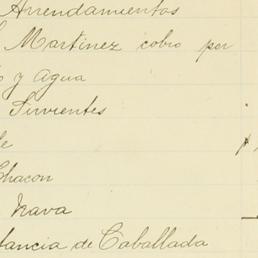 Arrendamientos
Martinez cobro por
y Agua
Sirvientes
Chacon
Nava
tancia de Caballada